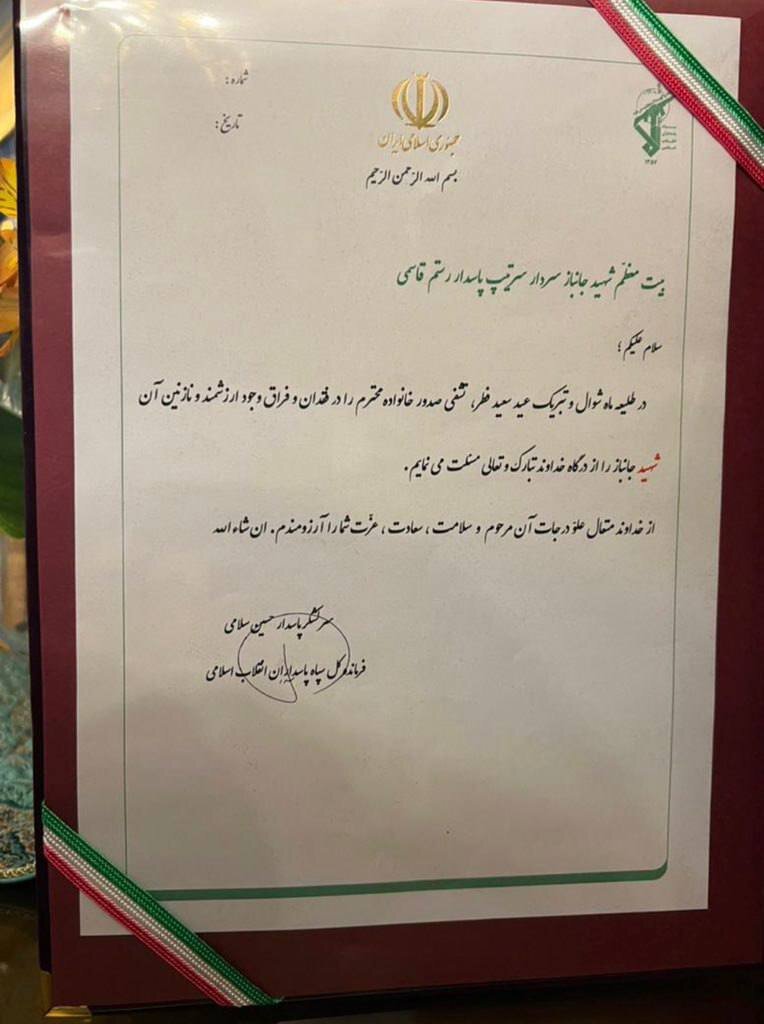 شماره:
تاریخ:
جمهوری اسلامی ایران
بسم الله الرحمن الرحیم
۱۳۵۷
بیت معظّم شهید جانباز سردار سرتیپ پاسدار رستم قاسمی
سلام علیکم؛
در طلیعه ماه شوال و تبریک عید سعید فطر، تشفی صدور خانواده محترم را در فقدان و فراق وجود ارزشمند و نازنین آن
شهید جانباز را از درگاه خداوند تبارک و تعالی مسئلت می نمایم.
از خداوند متعال علوّ درجات آن مرحوم و سلامت، سعادت، عزّت شما را آرزومندم. ان شاء الله
سرلشکر پاسدار حسین سلامی
فرمانده کل سپاه پاسداران انقلاب اسلامی